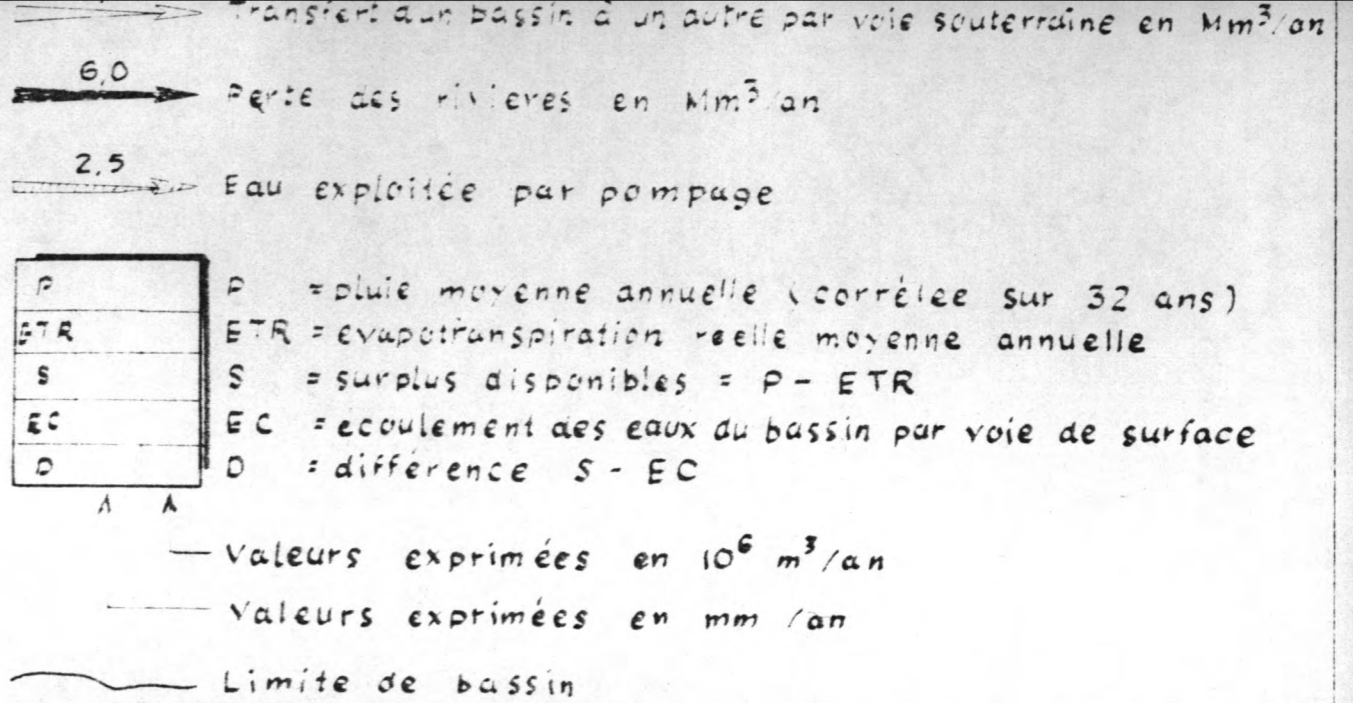 Transfert d'un bassin à un autre par voie souterraine en Mm³/an
6,0
Perte des rivieres en Mm³/an
2,5
Eau exploitée par pompage
P P = pluie moyenne annuelle (corrélee sur 32 ans)
ETR ETR = evapotranspiration reelle moyenne annuelle
S S = surplus disponibles = P - ETR
EC EC = ecoulement des eaux du bassin par voie de surface
D D = différence S - EC
Valeurs exprimées en 10⁶ m³/an
Valeurs exprimées en mm /an
Limite de bassin